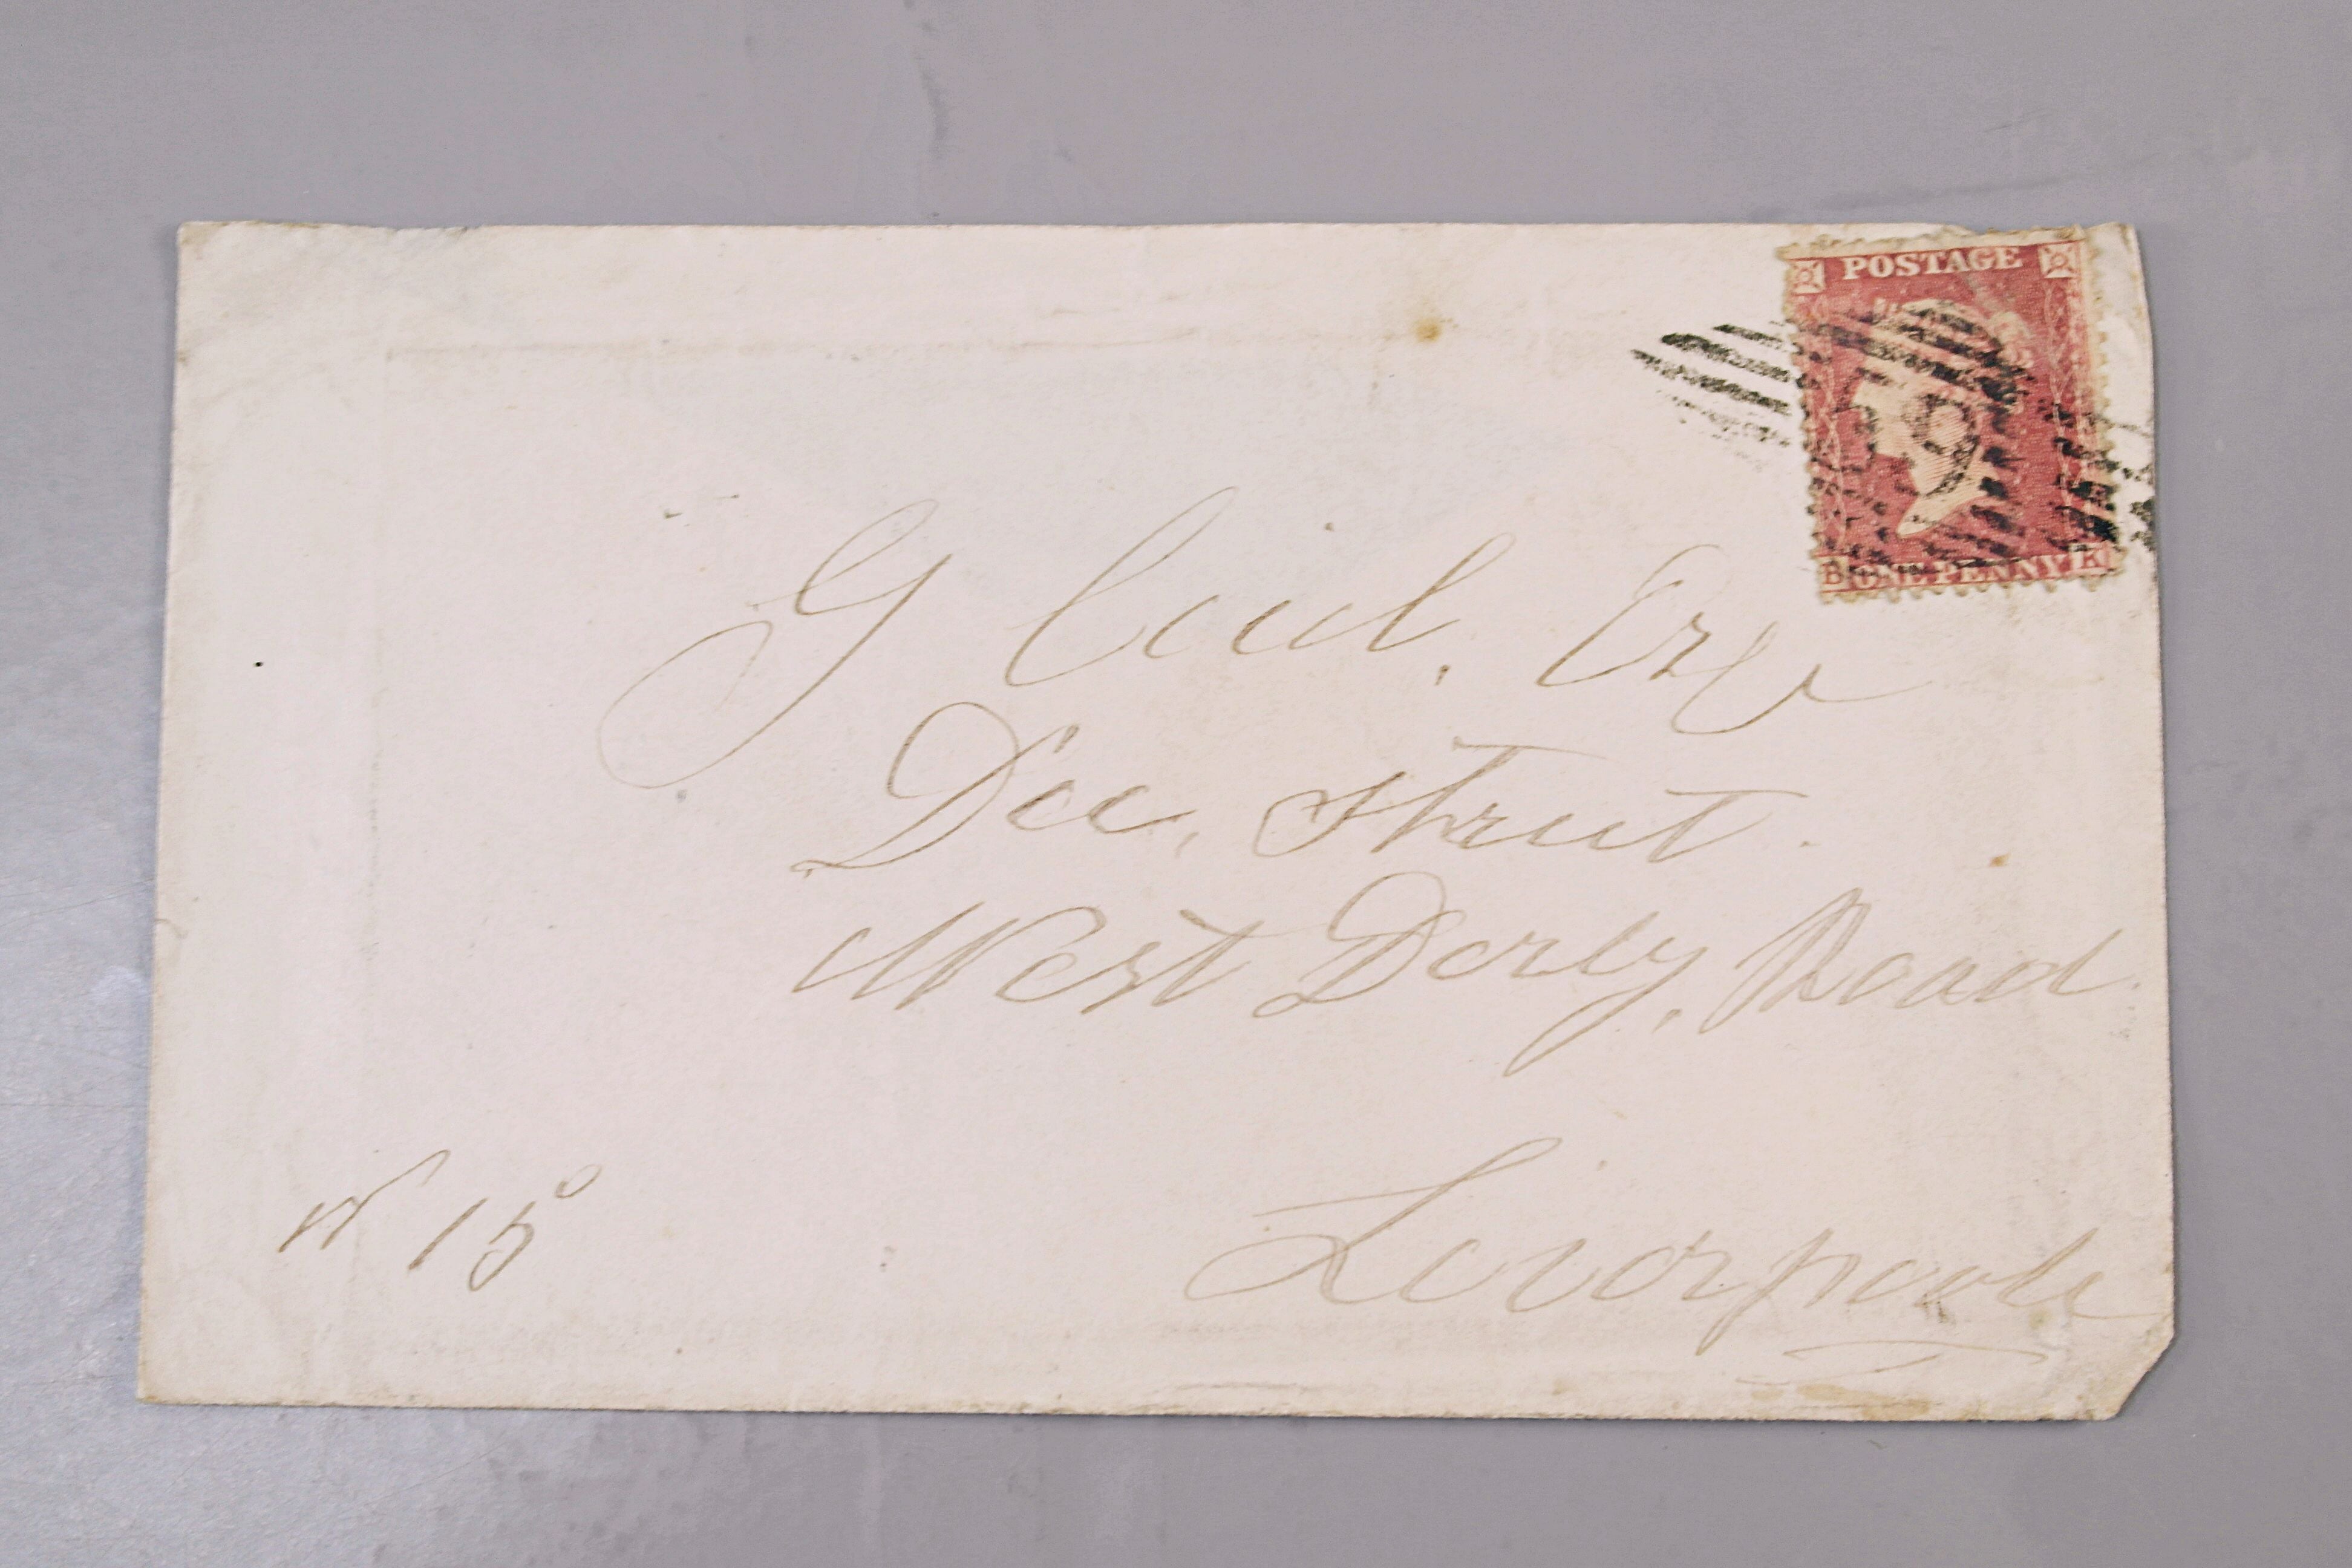 POSTAGE
59
B ONE PENNY K
G Cecil, Esqe
Dee, Street.
West Derby, Road.
Liverpoole
No 15